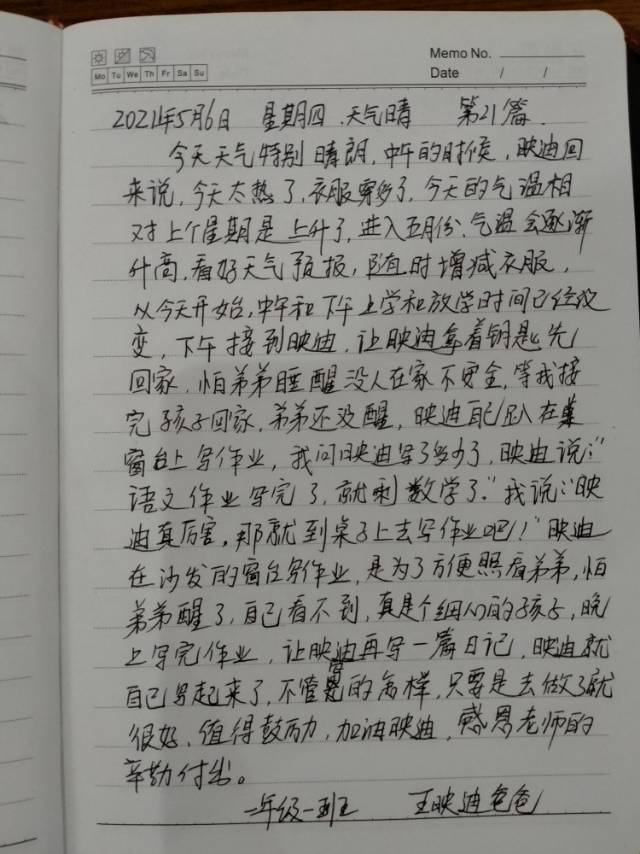 Memo No.
Mo Tu We Th Fr Sa Su
Date / /
2021年5月6日 星期四 天气晴 第21篇
今天天气特别晴朗，中午的时候，映迪回
来说，今天太热了，衣服穿多了，今天的气温相
对上个星期是上升了，进入五月份，气温会逐渐
升高，看好天气预报，随时增减衣服，
从今天开始，中午和下午上学和放学时间已经改
变，下午接到映迪，让映迪拿着钥匙先
回家，怕弟弟睡醒没人在家不安全，等我接
完孩子回家，弟弟还没醒，映迪自己趴在
窗台上写作业，我问映迪写了多少了，映迪说：“
语文作业写完了，就剩数学了。”我说：“映
迪真厉害，那就到桌子上去写作业吧！”映迪
在沙发的窗台写作业，是为了方便照看弟弟，怕
弟弟醒了，自己看不到，真是个细心的孩子，晚
上写完作业，让映迪再写一篇日记，映迪就
自己写起来了，不管写的怎样，只要是去做了就
很好，值得鼓励，加油映迪，感恩老师的
辛勤付出。
一年级一班 王映迪爸爸